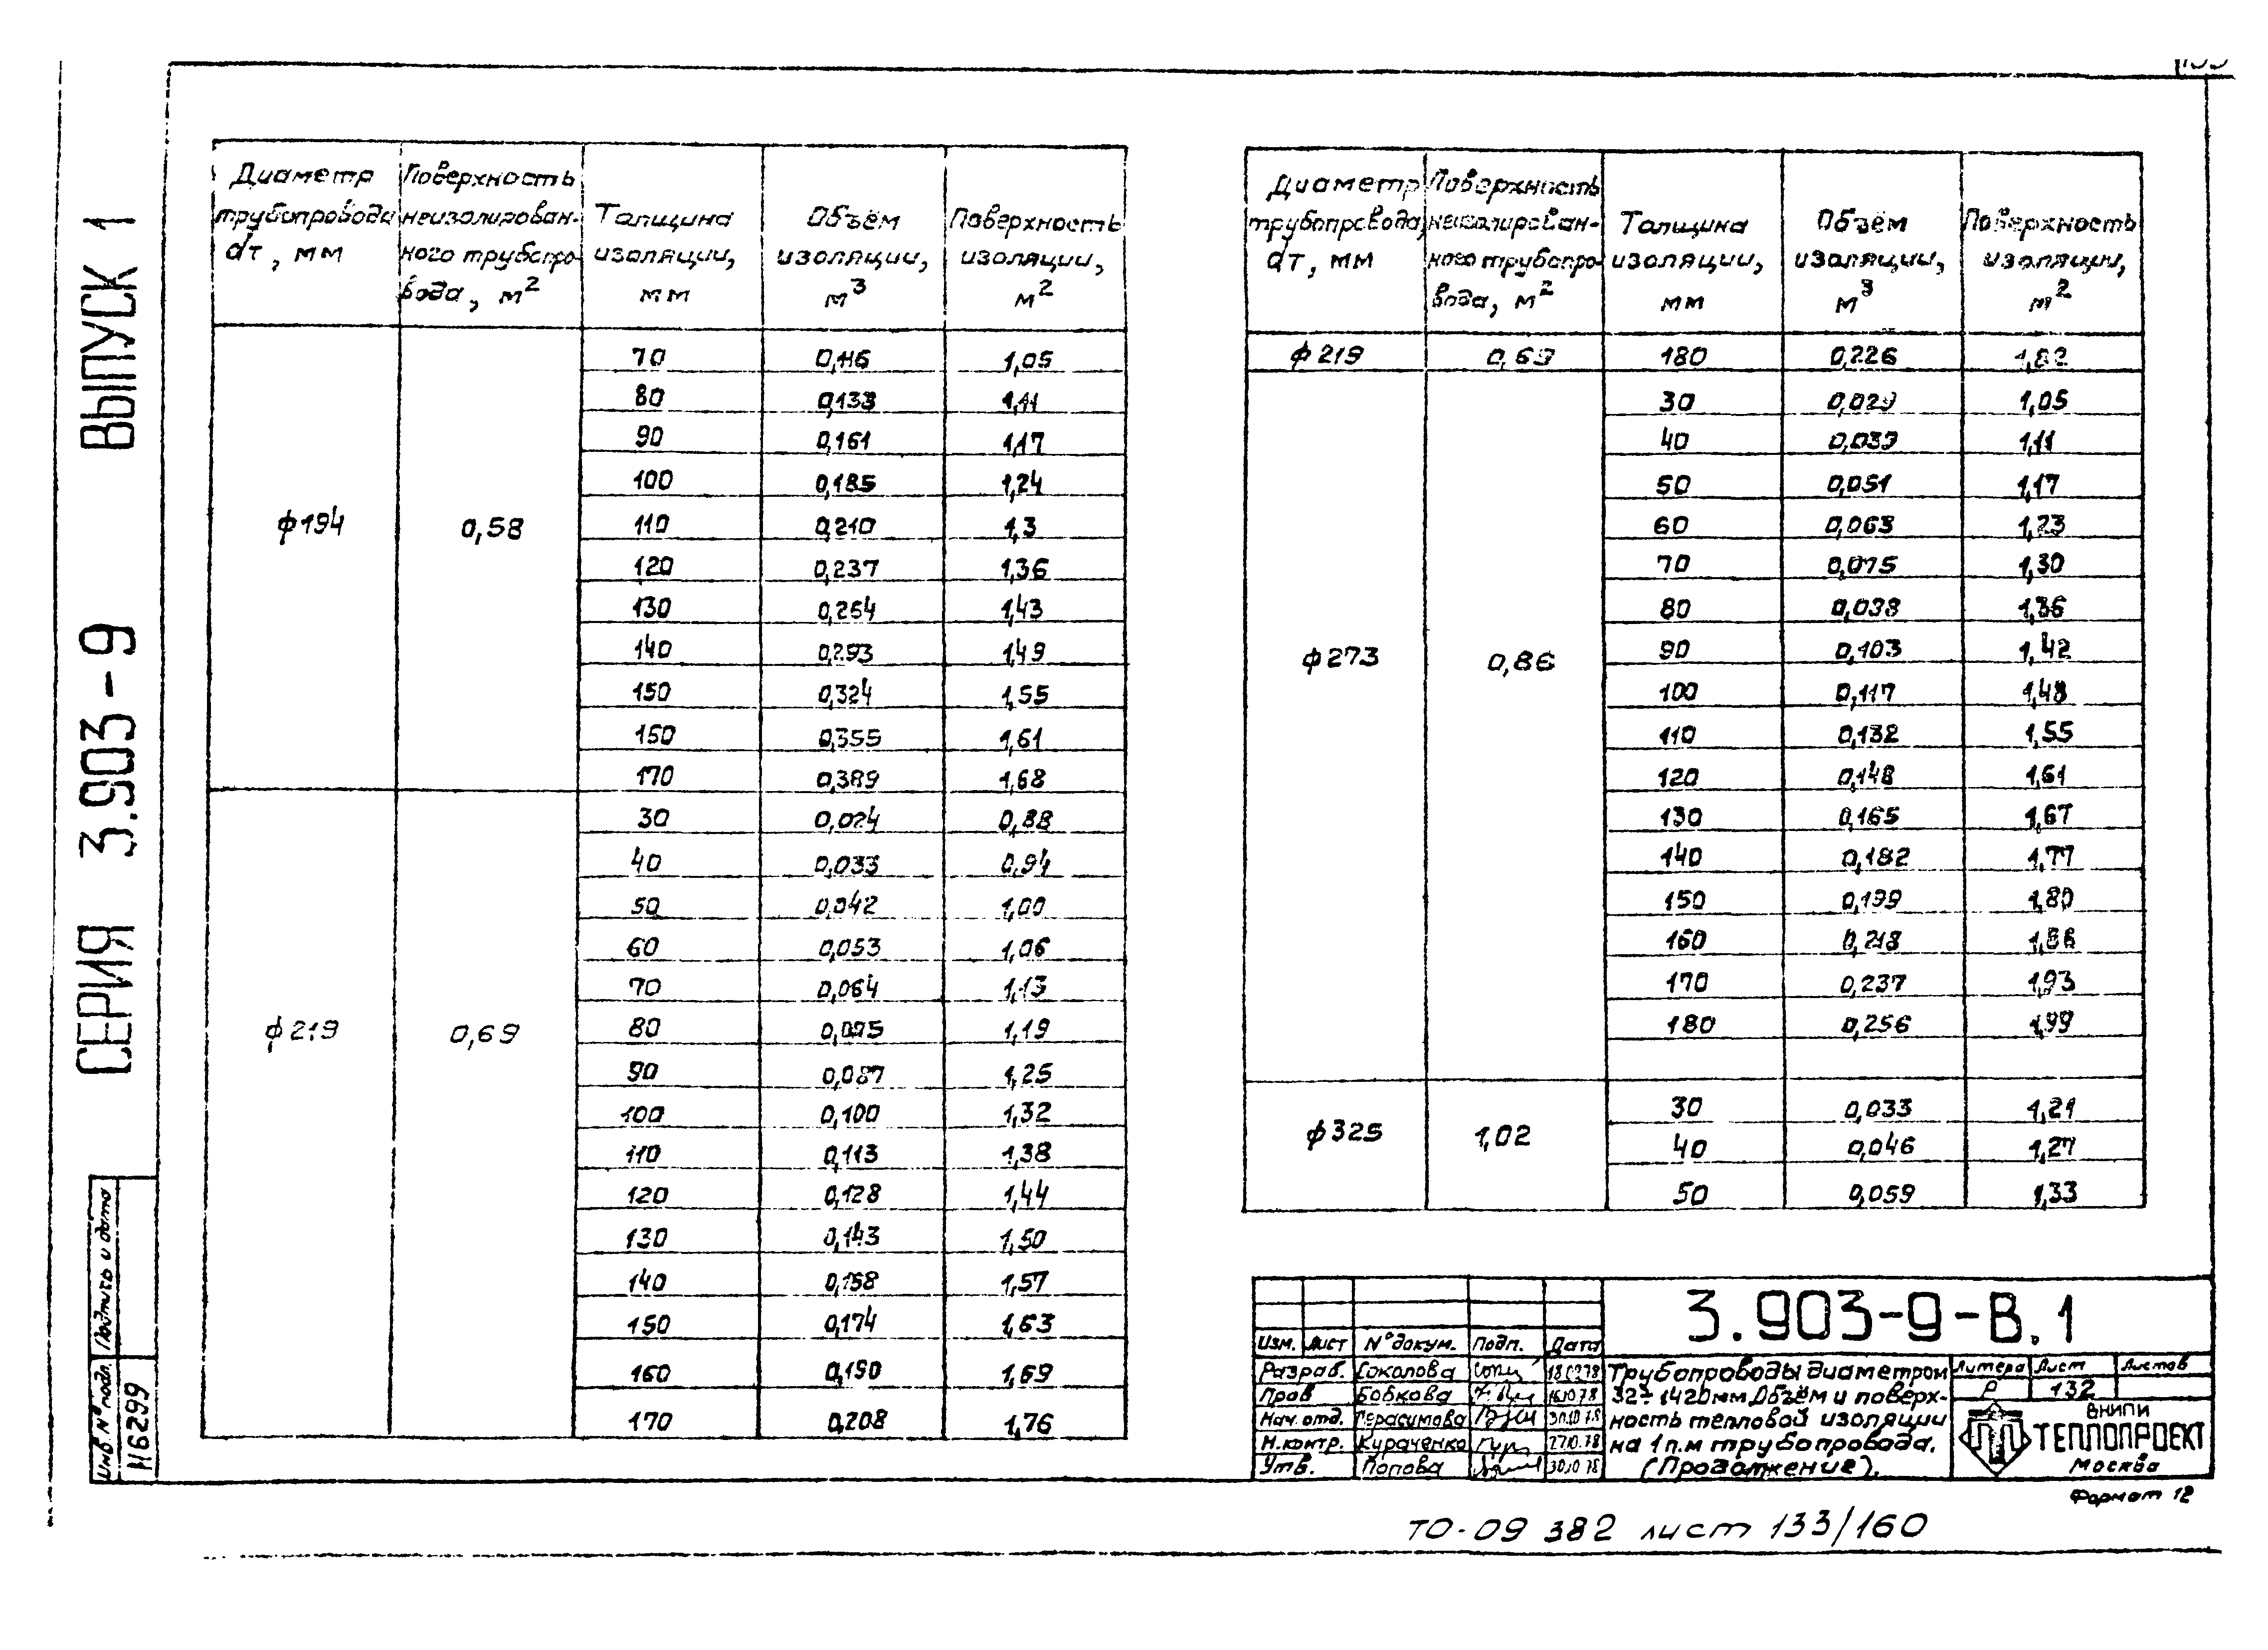 СЕРИЯ 3.903-9 ВЫПУСК 1
Диаметр трубопровода dт, мм
Поверхность неизолированного трубопровода, м²
Толщина изоляции, мм
Объём изоляции, м³
Поверхность изоляции, м²
ф194 0,58
70 0,116 1,05
80 0,133 1,11
90 0,161 1,17
100 0,185 1,24
110 0,210 1,3
120 0,237 1,36
130 0,264 1,43
140 0,293 1,49
150 0,324 1,55
160 0,355 1,61
170 0,389 1,68
ф219 0,69
30 0,024 0,88
40 0,033 0,94
50 0,042 1,00
60 0,053 1,06
70 0,064 1,13
80 0,075 1,19
90 0,087 1,25
100 0,100 1,32
110 0,113 1,38
120 0,128 1,44
130 0,143 1,50
140 0,158 1,57
150 0,174 1,63
160 0,190 1,69
170 0,208 1,76
Диаметр трубопровода, dт, мм
Поверхность неизолированного трубопровода, м²
Толщина изоляции, мм
Объём изоляции, м³
Поверхность изоляции, м²
ф219 0,69 180 0,226 1,82
ф273 0,86
30 0,029 1,05
40 0,039 1,11
50 0,051 1,17
60 0,063 1,23
70 0,075 1,30
80 0,038 1,36
90 0,103 1,42
100 0,117 1,48
110 0,132 1,55
120 0,148 1,61
130 0,165 1,67
140 0,182 1,77
150 0,199 1,80
160 0,218 1,86
170 0,237 1,93
180 0,256 1,99
ф325 1,02
30 0,033 1,21
40 0,046 1,27
50 0,059 1,33
Инв № подл. Подпись и дата
М6299
3.903-9-В.1
Изм. Лист № докум. Подп. Дата
Разраб. Соколова
Пров Бобкова 16.10.78
Нач. отд. Герасимова 30.10.78
Н.контр. Кураченко 27.10.78
Утв. Попова 30.10.78
Трубопроводы диаметром
32÷1420мм. Объём и поверх-
ность тепловой изоляции
на 1 п.м трубопровода.
(Продолжение).
Литера Лист Листов
Р 132
ВНИПИ
ТЕПЛОПРОЕКТ
Москва
Формат 12
ТО-09 382 лист 133/160